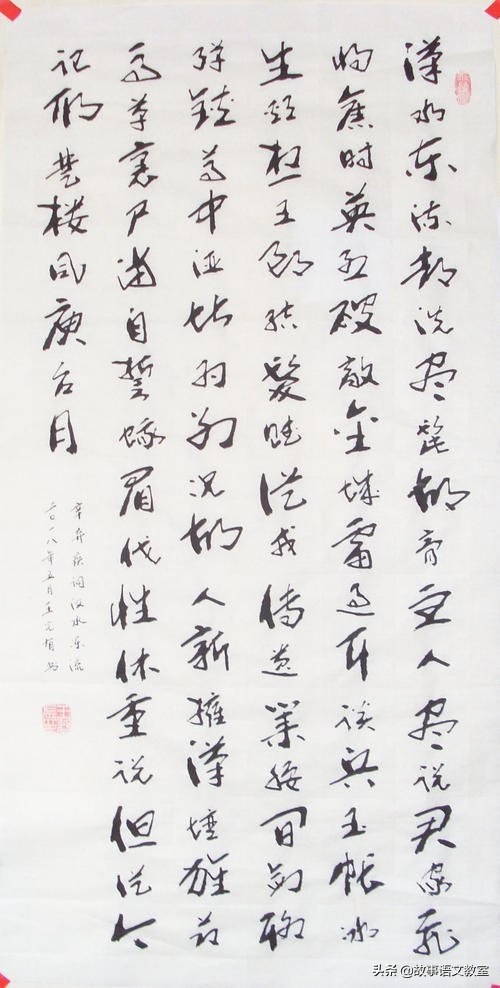 漢水东流都洗尽髭胡膏血人尽说君家飛
将舊时英烈破敵金城雷过耳谈兵玉帐冰
生颊想王郎结髪赋从戎传遗業腰间剑聊
弹铗尊中酒堪为别况故人新擁漢坛旌节
马革裹尸当自誓蛾眉伐性休重说但从今
记取楚楼风庾台月
辛弃疾词汉水东流
二〇一八年五月王
头条 @故事语文教室